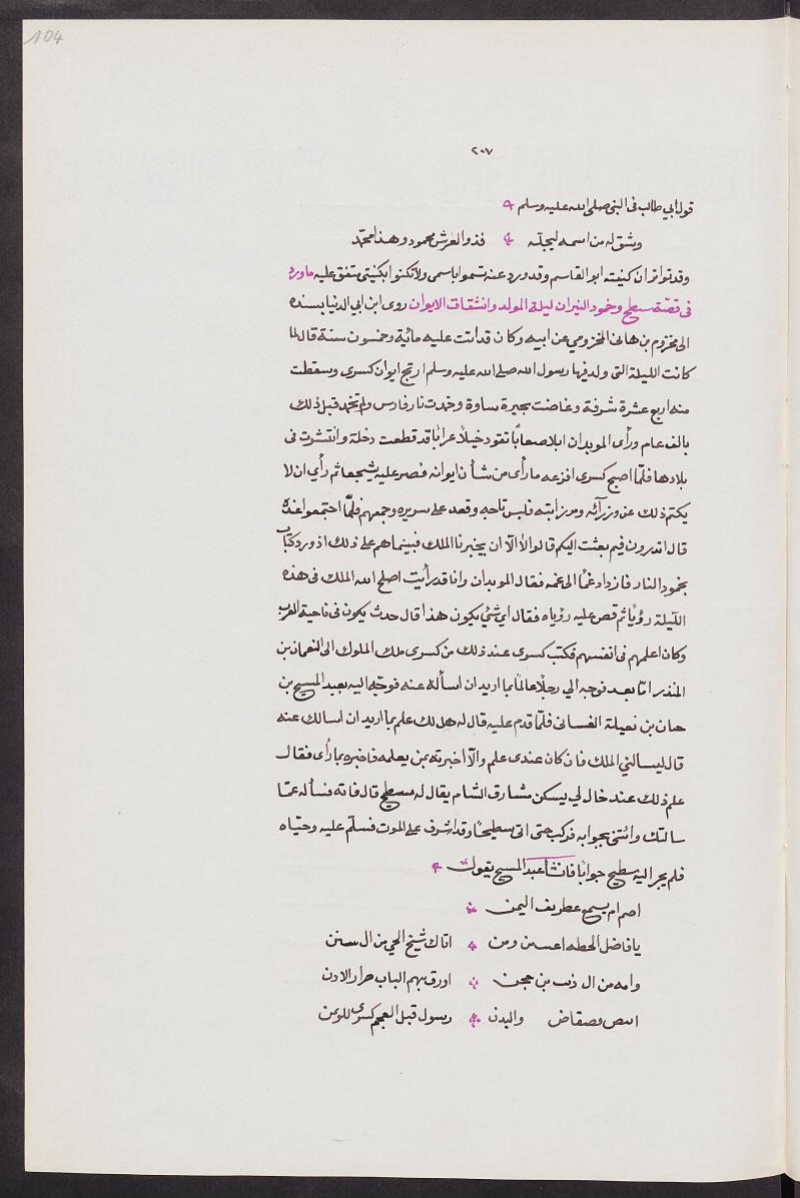 104
٢٠٧
قول ابي طالب فى النبى صلى الله عليه وسلم
وشق له من اسمه ليجله فذو العرش محمود وهذا محمّد
وقد تواتر ان كنيته ابو القاسم وقد ورد عنه تسموا باسمى ولا تكنوا بكنيتى متفق عليه ما ورد
فى قصّة سطيح وخمود النيران ليلة المولد وانشقاق الايوان روى ابن ابى الدنيا بسنده
الى مخزوم بن هانى المخزومي عن ابيه وكان قد اتت عليه مائية وخمسون سنة قال لما
كانت الليلة التى ولد فيها رسول الله صلى الله عليه وسلم ارتج ايوان كسرى وسقطت
منه اربع عشرة شرفة وغاضت بحيرة ساوة وخمدت نار فارس ولم تخمد قبل ذلك
بالف عام ورأى الموبدان ابلا صعابًا تقود خيلًا عرابًا قد قطعت دخلة وانتشرت فى
بلادها فلمّا اصبح كسرى افزعه ما رأى من شأن ايوانه فصبر عليه تشجعا ثم رأى ان لا
يكتم ذلك عن وزرآئه ومرزابته فلبس تاجه وقعد على سريره وجمعهم فلمّا اجتمعوا عنده
قال اتدرون فيم بعثت اليكم قالوا لا الّا ان يخبرنا الملك فبينما هم على ذلك اذ ورد كتاب
بخمود النار فازداد غمًا الى غمه فقال الموبدان وانا قد رأيت اصلح الله الملك فى هذه
الليلة رؤيًا ثم قص عليه رؤياه فقال اي شئ يكون هذا قال حدث يكون فى ناحية العرب
وكان اعلمهم فى انفسهم فكتب كسرى عند ذلك من كسرى ملك الملوك الى النعمان بن
المنذر امّا بعد فوجه الي رجلًا عالمًا بما اريد ان اسأله عنه فوجّه اليه بعبد المسيح بن
حيان بن نعيلة الغسانى فلمّا قدم عليه قال له هل لك علم بما اريد ان اسالك عنه
قال ليسالني الملك فان كان عندى علم والّا اخبرته بمن يعلمه فاخبره بما رأى فقال
علم ذلك عند خال لي يسكن مشارف الشام يقال له سطيح قال فاته فسأله عمّا
سالتك وائتنى بجوابه فركب حتى اتى سطيحًا وقد اشرف على الموت فسلّم عليه وحيّاه
فلم يحر اليه سطيح جوابًا فانشأ عبد المسيح يقول
اصم ام يسمع عطريف اليمن
يا فاضل الخطه اعيت من ومن اتاك شيخ الحي من ال سنن
وامه من ال ذيب بن حجن اورق بهم الناب صرار الاذن
ابيض فضفاض والبدن رسول قبل العجم كسرى للوسن